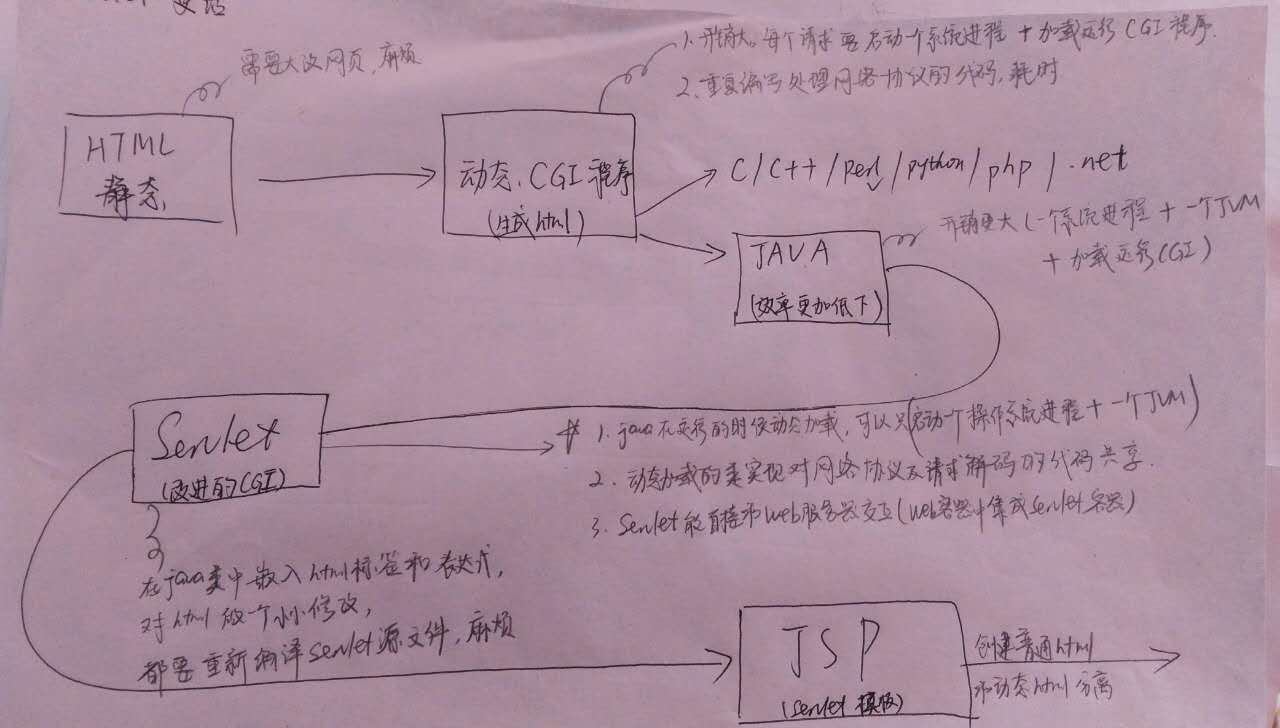 需要大改网页,麻烦
1. 开销大。每个请求要启动一个系统进程 + 加载运行 CGI 程序.
2、重复编写处理网络协议的代码,耗时
HTML
静态
动态、CGI 程序
(生成html)
C/C++/perl/python/php/.net
JAVA
(效率更加低下)
开销更大 (一个系统进程 + 一个JVM
+ 加载运行CGI)
Servlet
(改进的CGI)
1. java在运行的时候动态加载,可以只(启动一个操作系统进程 + 一个JVM)
2. 动态加载的类实现对网络协议及请求解码的代码共享.
3. Servlet 能直接和web服务器交互(web容器中集成servlet容器)
在java类中嵌入html标签和表达式,
对html做一个小小修改,
都要重新编译servlet源文件,麻烦
JSP
(servlet 模版)
创建普通html
和动态html分离